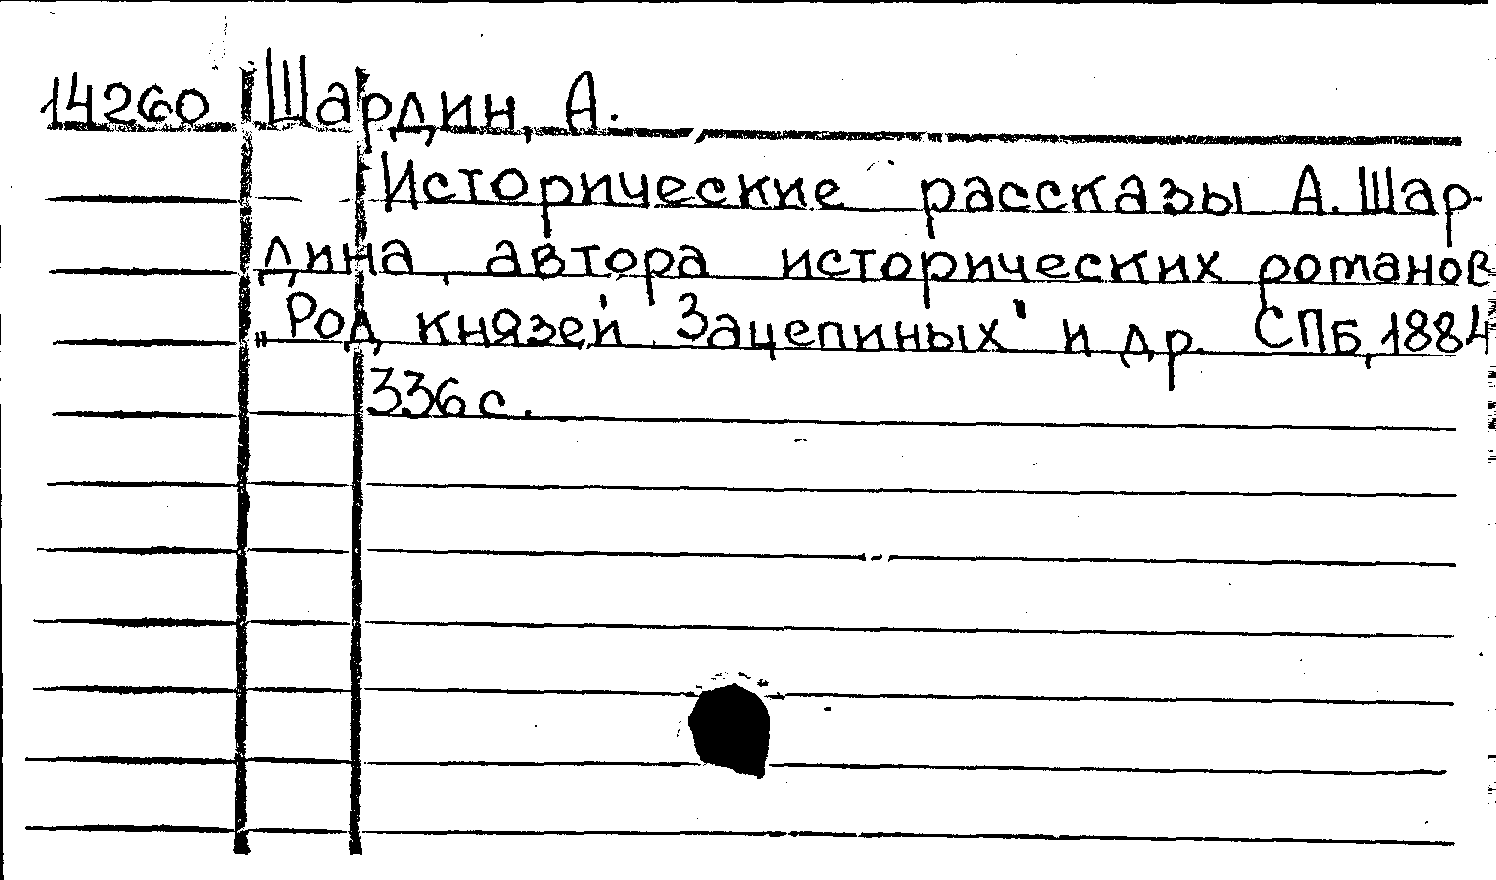 14260 Шардин, А.
Исторические рассказы А. Шар-
дина, автора исторических романов
„Род князей Зацепиных" и др. СПБ, 1884
336 с.